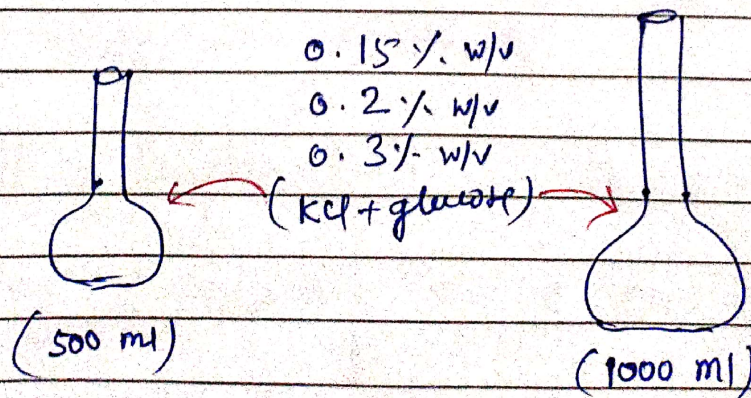 0.15 % w/v
0.2 % w/v
0.3 % w/v
(KCl + glucose)
(500 ml)
(1000 ml)